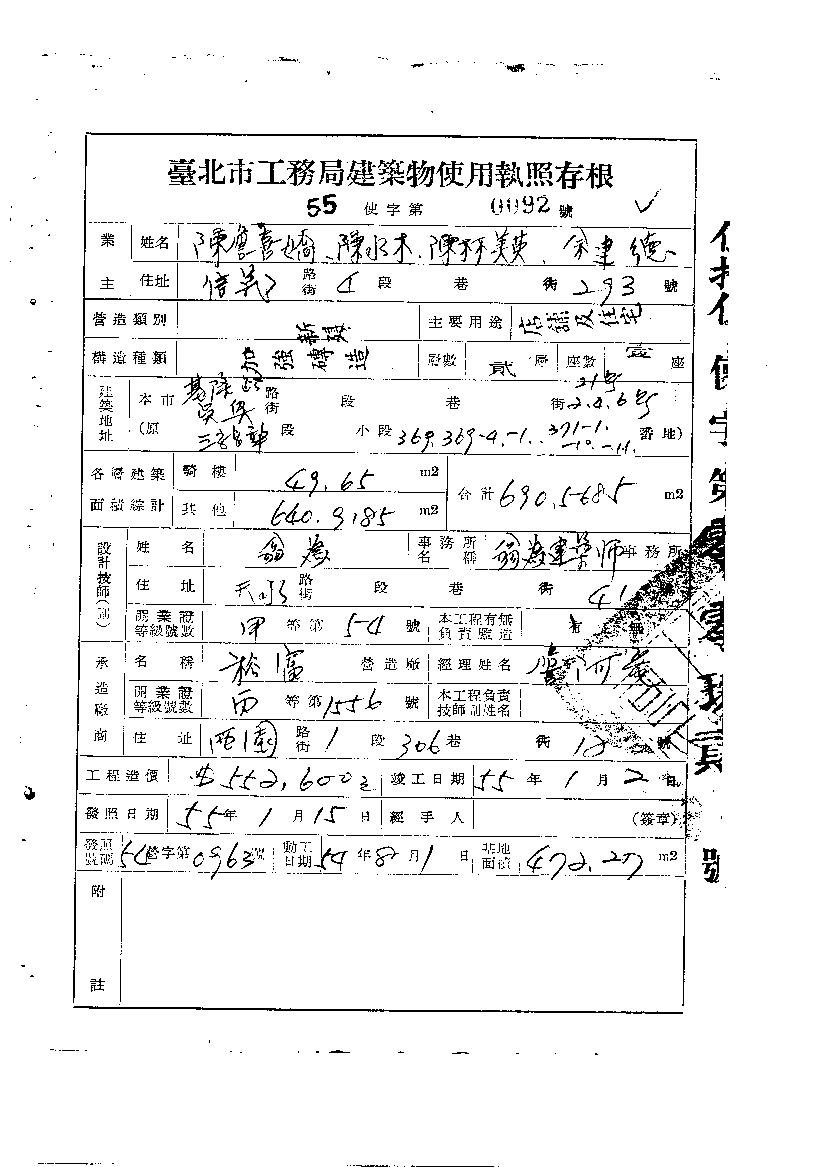 臺北市工務局建築物使用執照存根
55 使字第 0092 號
業主 姓名 陳詹喜嬌、陳水木、陳林美英、余建德
住址 信義路街 4 段 巷 街 293 號
營造類別 新建 主要用途 店舖及住宅
構造種類 加強磚造 層數 貳層 座數 壹座
建築地址 本市 基隆路 吳興 路街 段 巷 街 21号 2.4.6号
(原 段 小段 369.369-4.-1. 371-1. -10.-11. 番地)
各層建築面積綜計 騎樓 49.65 m2 合計 690.5685 m2
其他 640.9185 m2
設計技師(副) 姓名 翁為 事務所名稱 翁為建築師事務所
住址 天水路街 段 巷 街 41
開業證等級號數 甲等第 54 號 本工程有無負責監造 有 無
承造廠商 名稱 裕富 營造廠 經理姓名
開業證等級號數 丙等第 1556 號 本工程負責技師副姓名
住址 西園路街 1 段 306 巷 街 號
工程造價 $552,600 竣工日期 55 年 1 月 2 日
發照日期 55 年 1 月 15 日 經手人 (簽章)
發照號碼 54 營字第 0963 號 動工日期 54 年 8 月 1 日 基地面積 472.27 m2
附註
使字第零零玖貳號